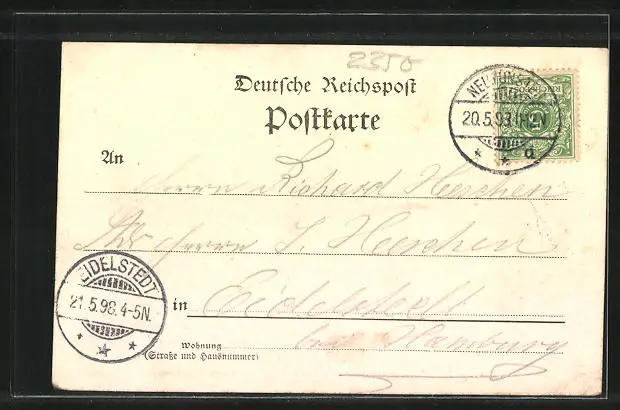 2350
Deutsche Reichspost
Postkarte
20.5.98.
An
Herrn Richard Herschen
Herrn J. Herschen
EIDELSTEDT
21.5.98.4-5N.
in Eidelstedt
bei Hamburg
Wohnung
(Straße und Hausnummer)